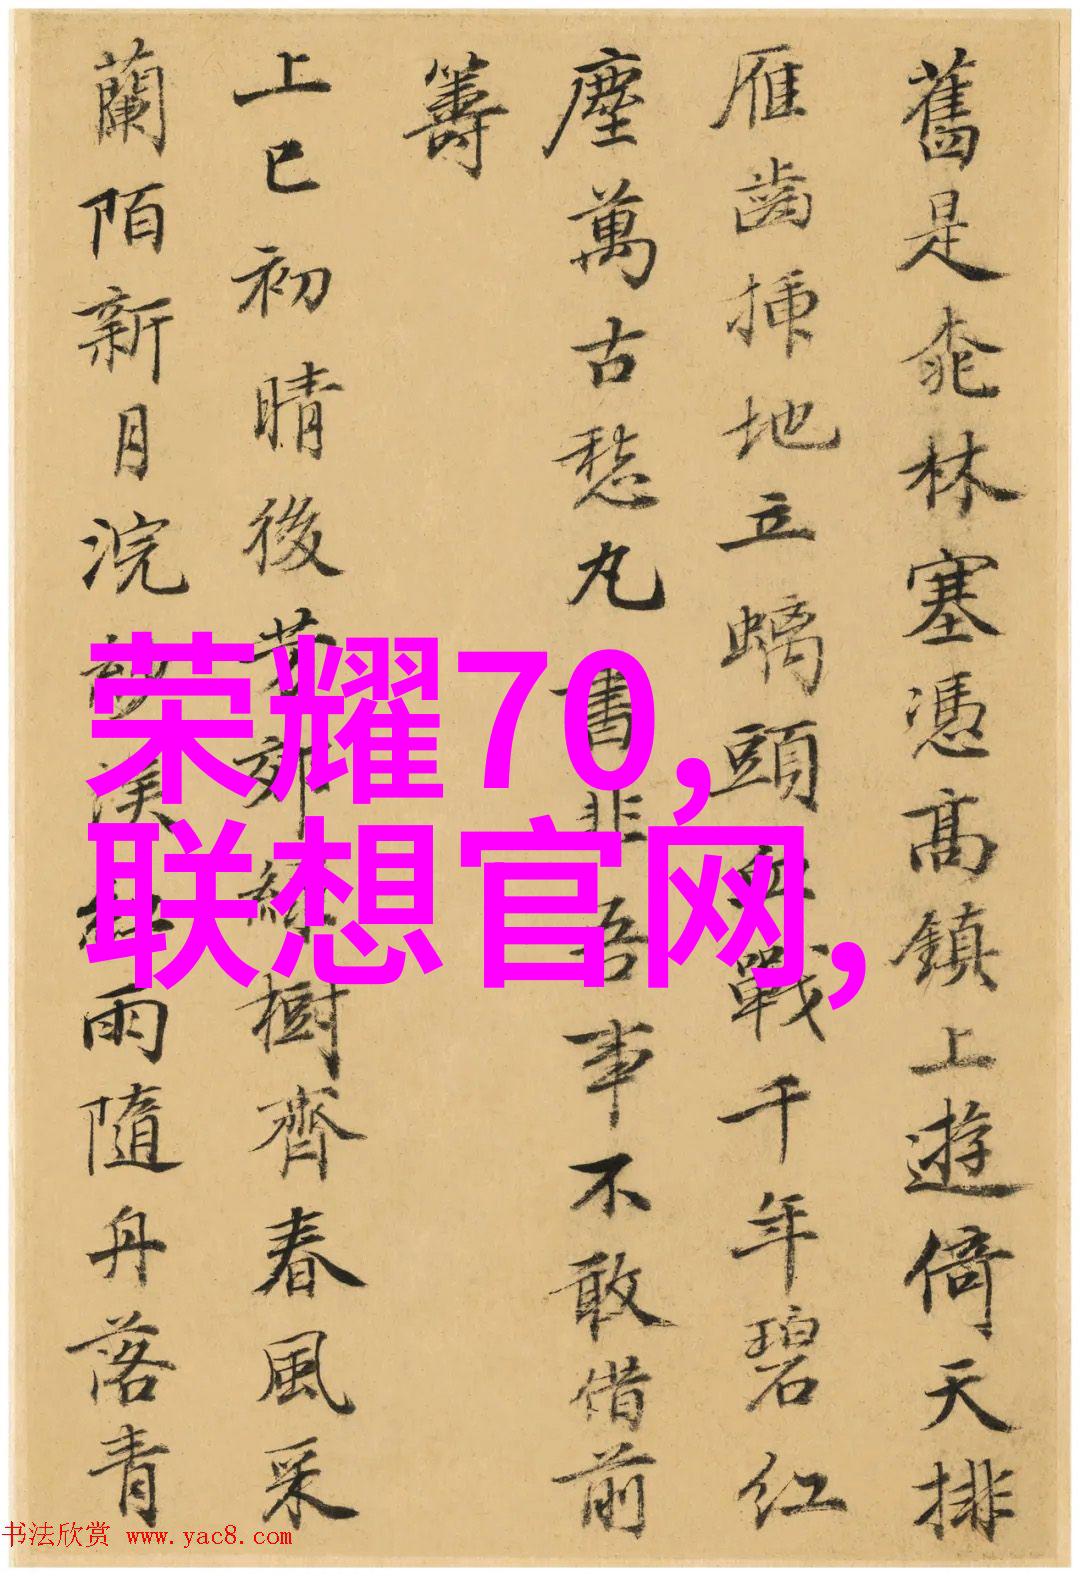 舊是桃林塞憑高鎮上遊倚天排
雁齒插地立螭頭血戰千年碧紅
塵萬古愁丸書非吾事不敢借前
籌
上巳初晴後芳郊綠樹齊春風采
蘭陌新月浣溪紅雨隨丹落青
荣耀70,
联想官网,
书法欣赏 www.yac8.com